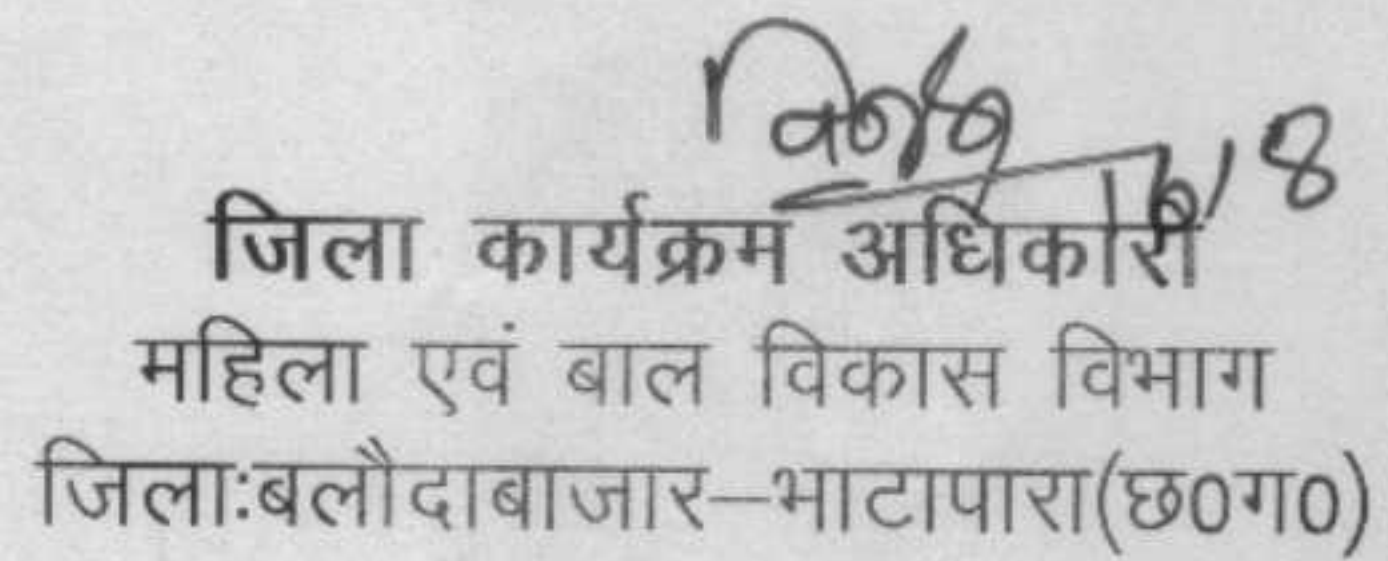 जिला कार्यक्रम अधिकारी
महिला एवं बाल विकास विभाग
जिला:बलौदाबाजार–भाटापारा(छ0ग0)